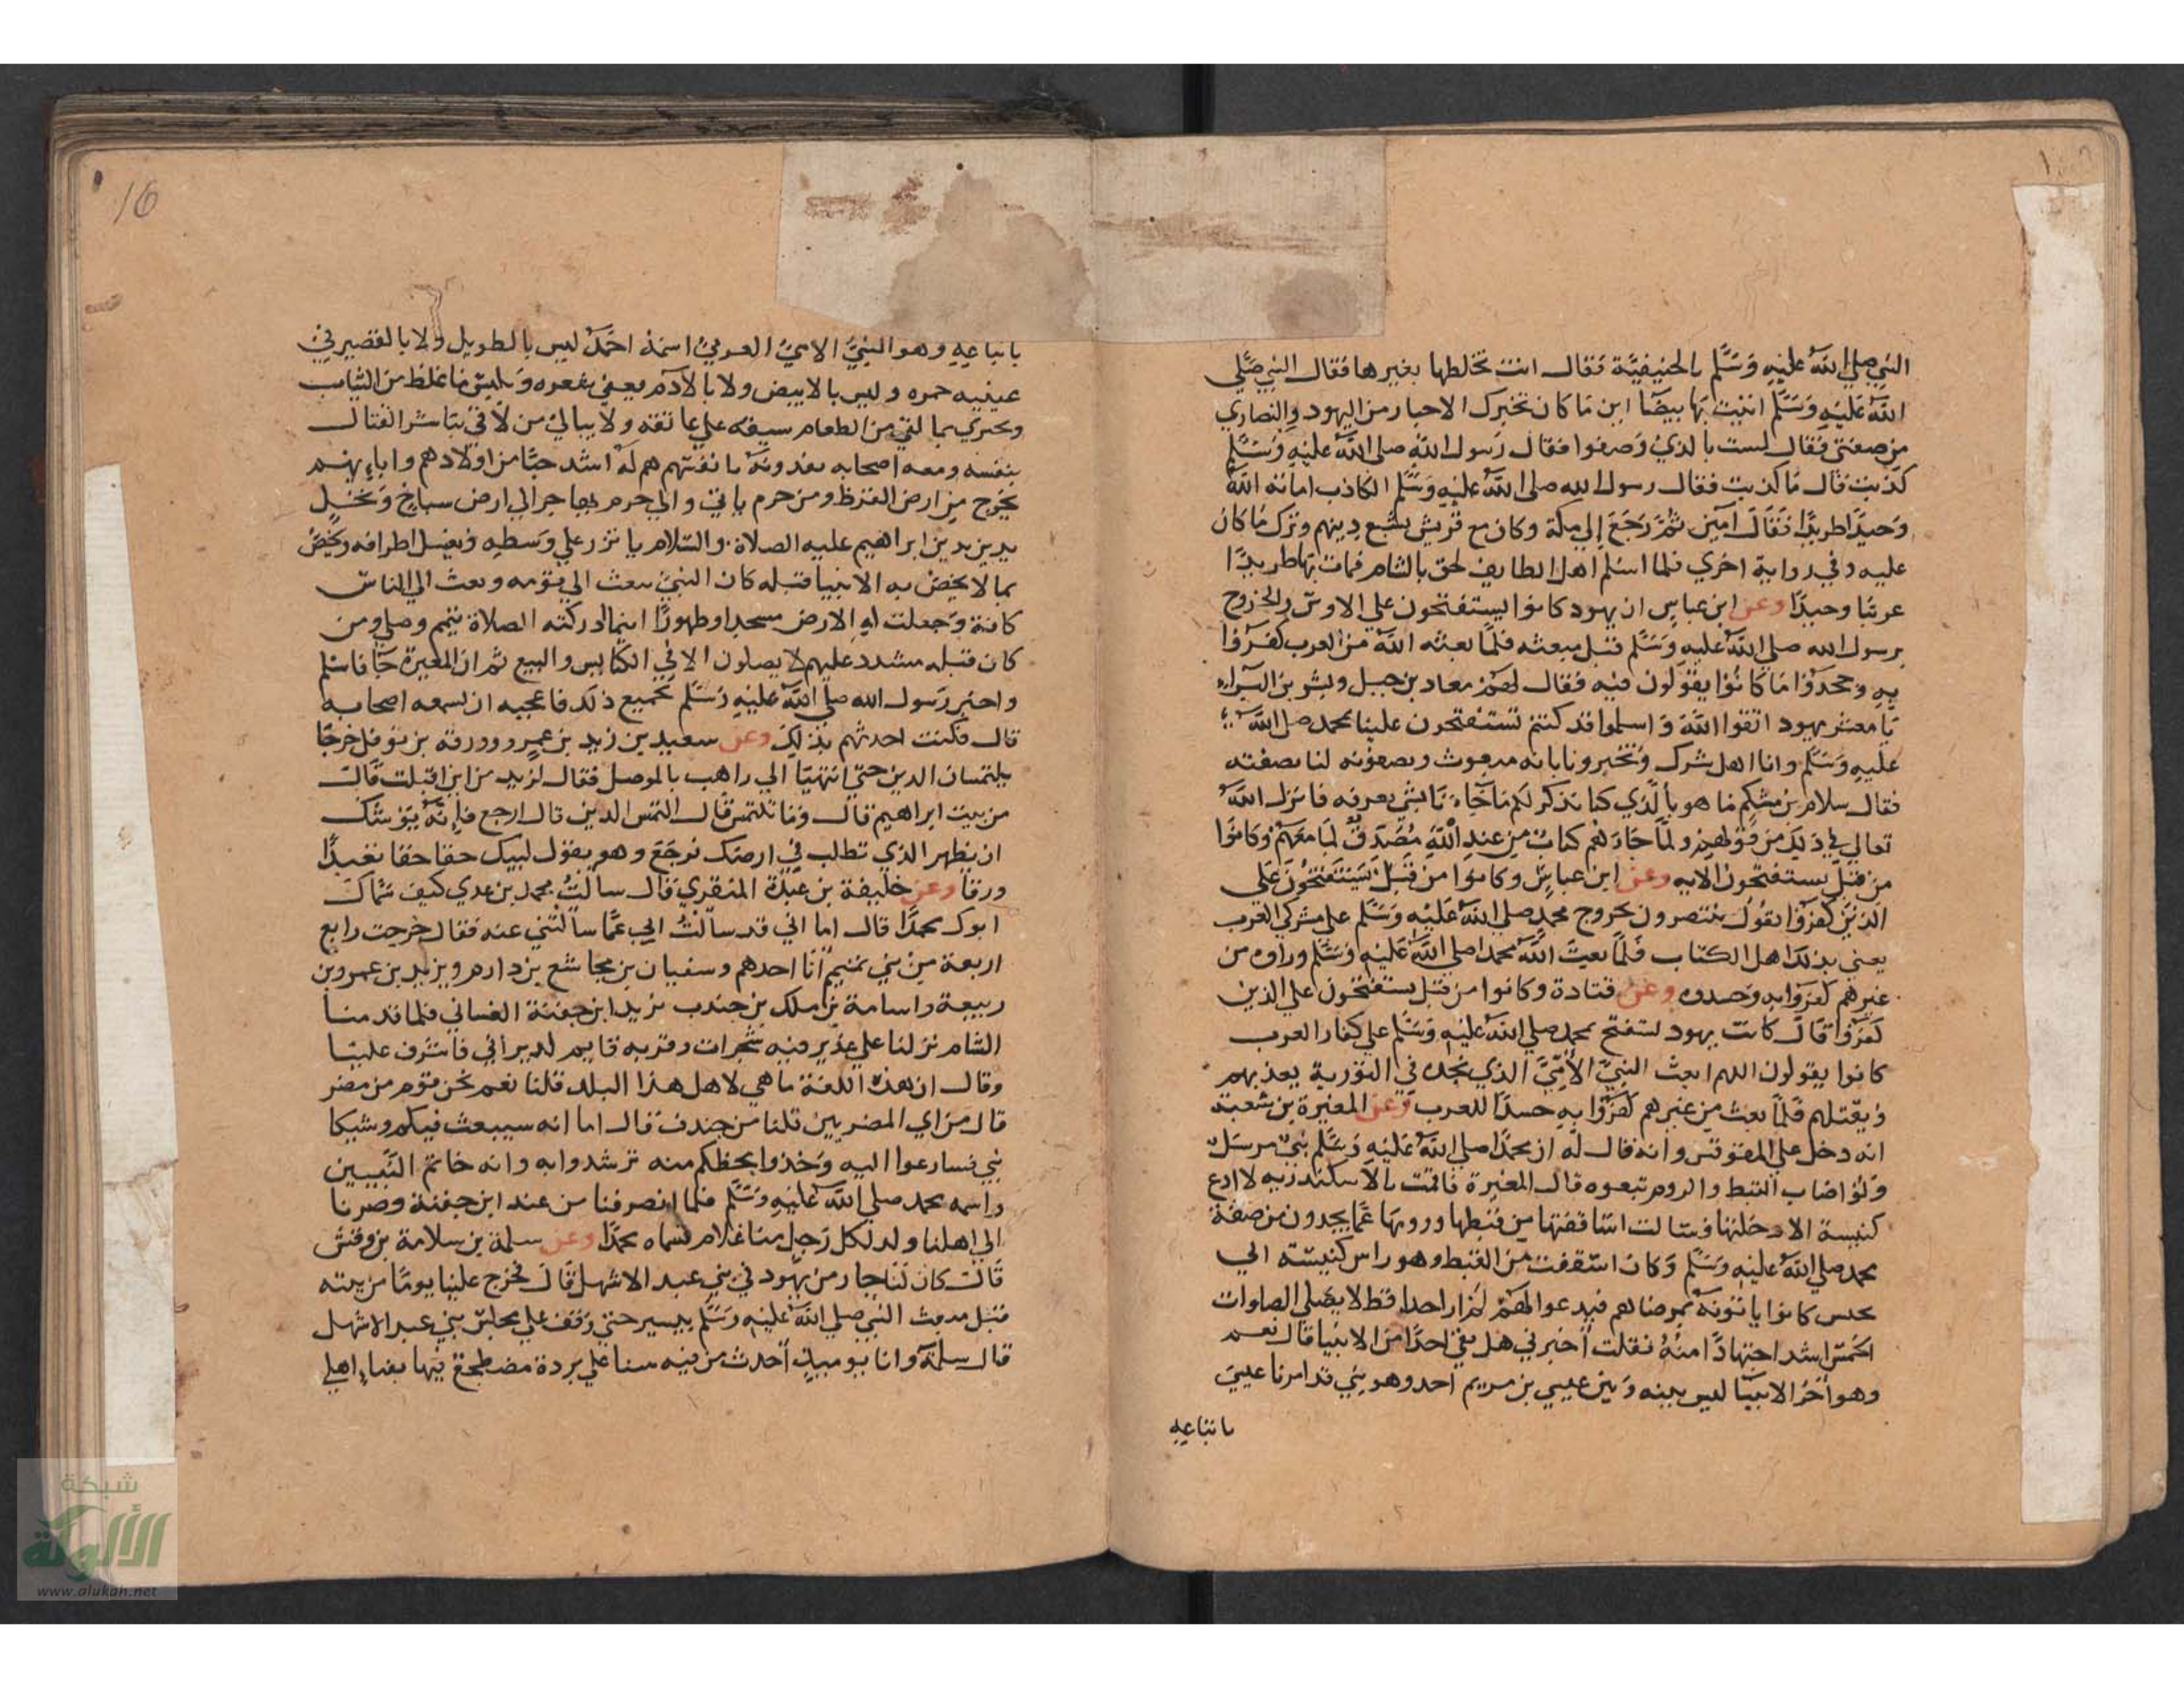 النبي صلي الله عليه وسلم بالحنيفية فقال انت تخلطها بغيرها فقال النبي صلي
الله عليه وسلم اتيت بها بيضا ابن ما كان تخبرك الاحبار من اليهود والنصاري
من صفتي فقال لست بالذي وصفوا فقال رسول الله صلي الله عليه وسلم
كذبت قال ما كذبت فقال رسول الله صلي الله عليه وسلم الكاذب اماته الله
وحيدا طريدا فقال امين ثم رجع الي مكة وكان مع قريش يتبع دينهم وترك ما كان
عليه وفي رواية اخري فلما اسلم اهل الطايف لحق بالشام فمات بها طريدا
غريبا وحيدا وعن ابن عباس ان يهود كانوا يستفتحون علي الاوس والخزرج
برسول الله صلي الله عليه وسلم قبل مبعثه فلما بعثه الله من العرب كفروا
به وجحدوا ما كانوا يقولون فيه فقال لهم معاد بن جبل وبشر بن البراء
يا معشر يهود اتقوا الله واسلموا قد كنتم تستفتحون علينا بمحمد صلي الله
عليه وسلم وانا اهل شرك وتخبرونا بانه مبعوث وتصفونه لنا بصفته
فقال سلام بن مشكم ما هو بالذي كنا نذكر لكم ما جاءنا بشي يعرفه فانزل الله
تعالي في ذلك من قولهم ولما جاءهم كتاب من عند الله مصدق لما معهم وكانوا
من قبل يستفتحون الايه وعن ابن عباس وكانوا من قبل يستفتحون علي
الذين كفروا يقول يستنصرون بخروج محمد صلي الله عليه وسلم علي مشركي العرب
يعني بذلك اهل الكتاب فلما بعث الله محمدا صلي الله عليه وسلم وراوه من
غيرهم كفروا به وحسدوه وعن قتادة وكانوا من قبل يستفتحون علي الذين
كفروا قال كانت يهود تستفتح بمحمد صلي الله عليه وسلم علي كفار العرب
كانوا يقولون اللهم ابعث النبي الامي الذي نجده في التورية يعذبهم
ويقتلهم فلما بعث من غيرهم كفروا به حسدا للعرب وعن المغيرة بن شعبة
انه دخل علي المقوقس وانه قال له ان محمدا صلي الله عليه وسلم نبي مرسل
ولو اصاب القبط والروم تبعوه قال المغيرة فاقمت بالاسكندريه لا ادع
كنيسة الا دخلتها وسالت اساقفتها من قبطها ورومها عما يجدون من صفة
محمد صلي الله عليه وسلم وكان اسقفف من القبط وهو راس كنيسته الي
كانوا ياتونه بمرضاهم فيدعو لهم لم ار احدا قط لا يصلي الصلوات
الخمس اشد اجتهادا منه فقلت اخبرني هل بقي احدا من الانبيا قال نعم
وهو اخر الانبيا ليس بينه وبين عيسي بن مريم احد وهو نبي قد امرنا عيسي
باتباعه
16
باتباعه وهو النبي الامي العربي اسمه احمد ليس بالطويل ولا بالقصير في
عينيه حمره وليس بالابيض ولا بالادم يعفي شعره ويلبس ما غلظ من الثياب
ويجتزي بما لقي من الطعام سيفه علي عاتقه ولا يبالي من لاقي يباشر القتال
بنفسه ومعه اصحابه يفدونه بانفسهم هم له اشد حبا من اولادهم واباءيهم
يخرج من ارض القرظ ومن حرم ياتي والي حرم يهاجر الي ارض سباخ ونخل
يدين بدين ابراهيم عليه الصلاة والسلام ياتزر علي وسطه ويغسل اطرافه ويخص
بما لا يخص به الانبيا قبله كان النبي يبعث الي قومه وبعث الي الناس
كافة وجعلت له الارض مسجدا وطهورا اينما ادركته الصلاة تيمم وصلي ومن
كان قبله مشدد عليهم لا يصلون الا في الكنايس والبيع ثم ان المغيرة جا فاسلم
واخبر رسول الله صلي الله عليه وسلم بجميع ذلك فاعجبه ان يسمعه اصحابه
قال فكنت احدثهم بذلك وعن سعيد بن زيد بن عمرو وورقة بن نوفل خرجا
يلتمسان الدين حتي انتهيا الي راهب بالموصل فقال لزيد من اين اقبلت قال
من بيت ابراهيم قال وما تلتمس قال التمس الدين قال ارجع فانه يوشك
ان يظهر الذي تطلب في ارضك فرجع وهو يقول لبيك حقا حقا تعبدا
ورقا وعن خليفة بن عبدة المنقري قال سالت محمد بن عدي كيف سماك
ابوك محمدا قال اما اني قد سالت ابي عما سالتني عنه فقال خرجت رابع
اربعة من بني تميم انا احدهم وسفيان بن مجاشع بن دارم ويزيد بن عمرو بن
ربيعة واسامة بن ملك بن جندب نريد ابن جفنة الغساني فلما قدمنا
الشام نزلنا علي غدير فيه شجرات وقربه قايم لديراني فاشرف علينا
وقال ان هذه اللغة ما هي لاهل هذا البلد قلنا نعم نحن قوم من مضر
قال من اي المضريين قلنا من جندف قال اما انه سيبعث فيكم وشيكا
نبي فسارعوا اليه وخذوا بحظكم منه ترشدوا به وانه خاتم النبيين
واسمه محمد صلي الله عليه وسلم فلما انصرفنا من عند ابن جفنة وصرنا
الي اهلنا ولد لكل رجل منا غلام فسماه محمدا وعن سلمة بن سلامة بن وقش
قال كان لنا جار من يهود في بني عبد الاشهل قال فخرج علينا يوما من بيته
قبل مبعث النبي صلي الله عليه وسلم بيسير حتي وقف علي مجلس بني عبد الاشهل
قال سلمة وانا يوميذ احدث من فيه سنا علي بردة مضطجع فيها بفناء اهلي
شبكة
الألوكة
www.alukah.net